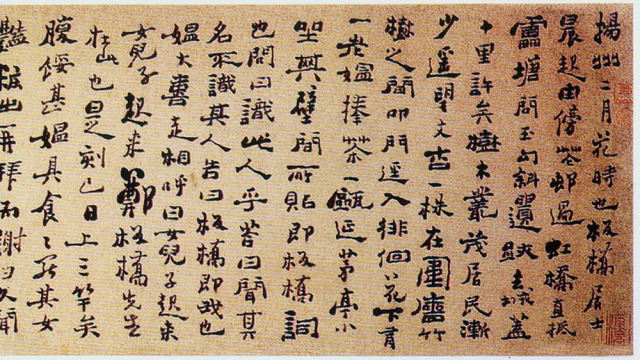 揚州二月花時也板橋居士
晨起由傍花邨過虹橋直抵
雷塘問玉勾斜遺跡去城蓋
十里許矣樹木叢茂居民漸
少遥望文杏一株在圍墻竹
樹之間叩門逕入徘徊花下有
一老媪捧茶一甌延茅亭小
坐其壁間所貼即板橋詞
也問曰識此人乎荅曰聞其
名不識其人告曰板橋即我也
媪大喜走相呼曰女兒子起來
女兒子起來鄭板橋先生
在此也是刻已日上三竿矣
腹餒甚媪具食〻罷其女
豔粧出再拜而謝曰久聞